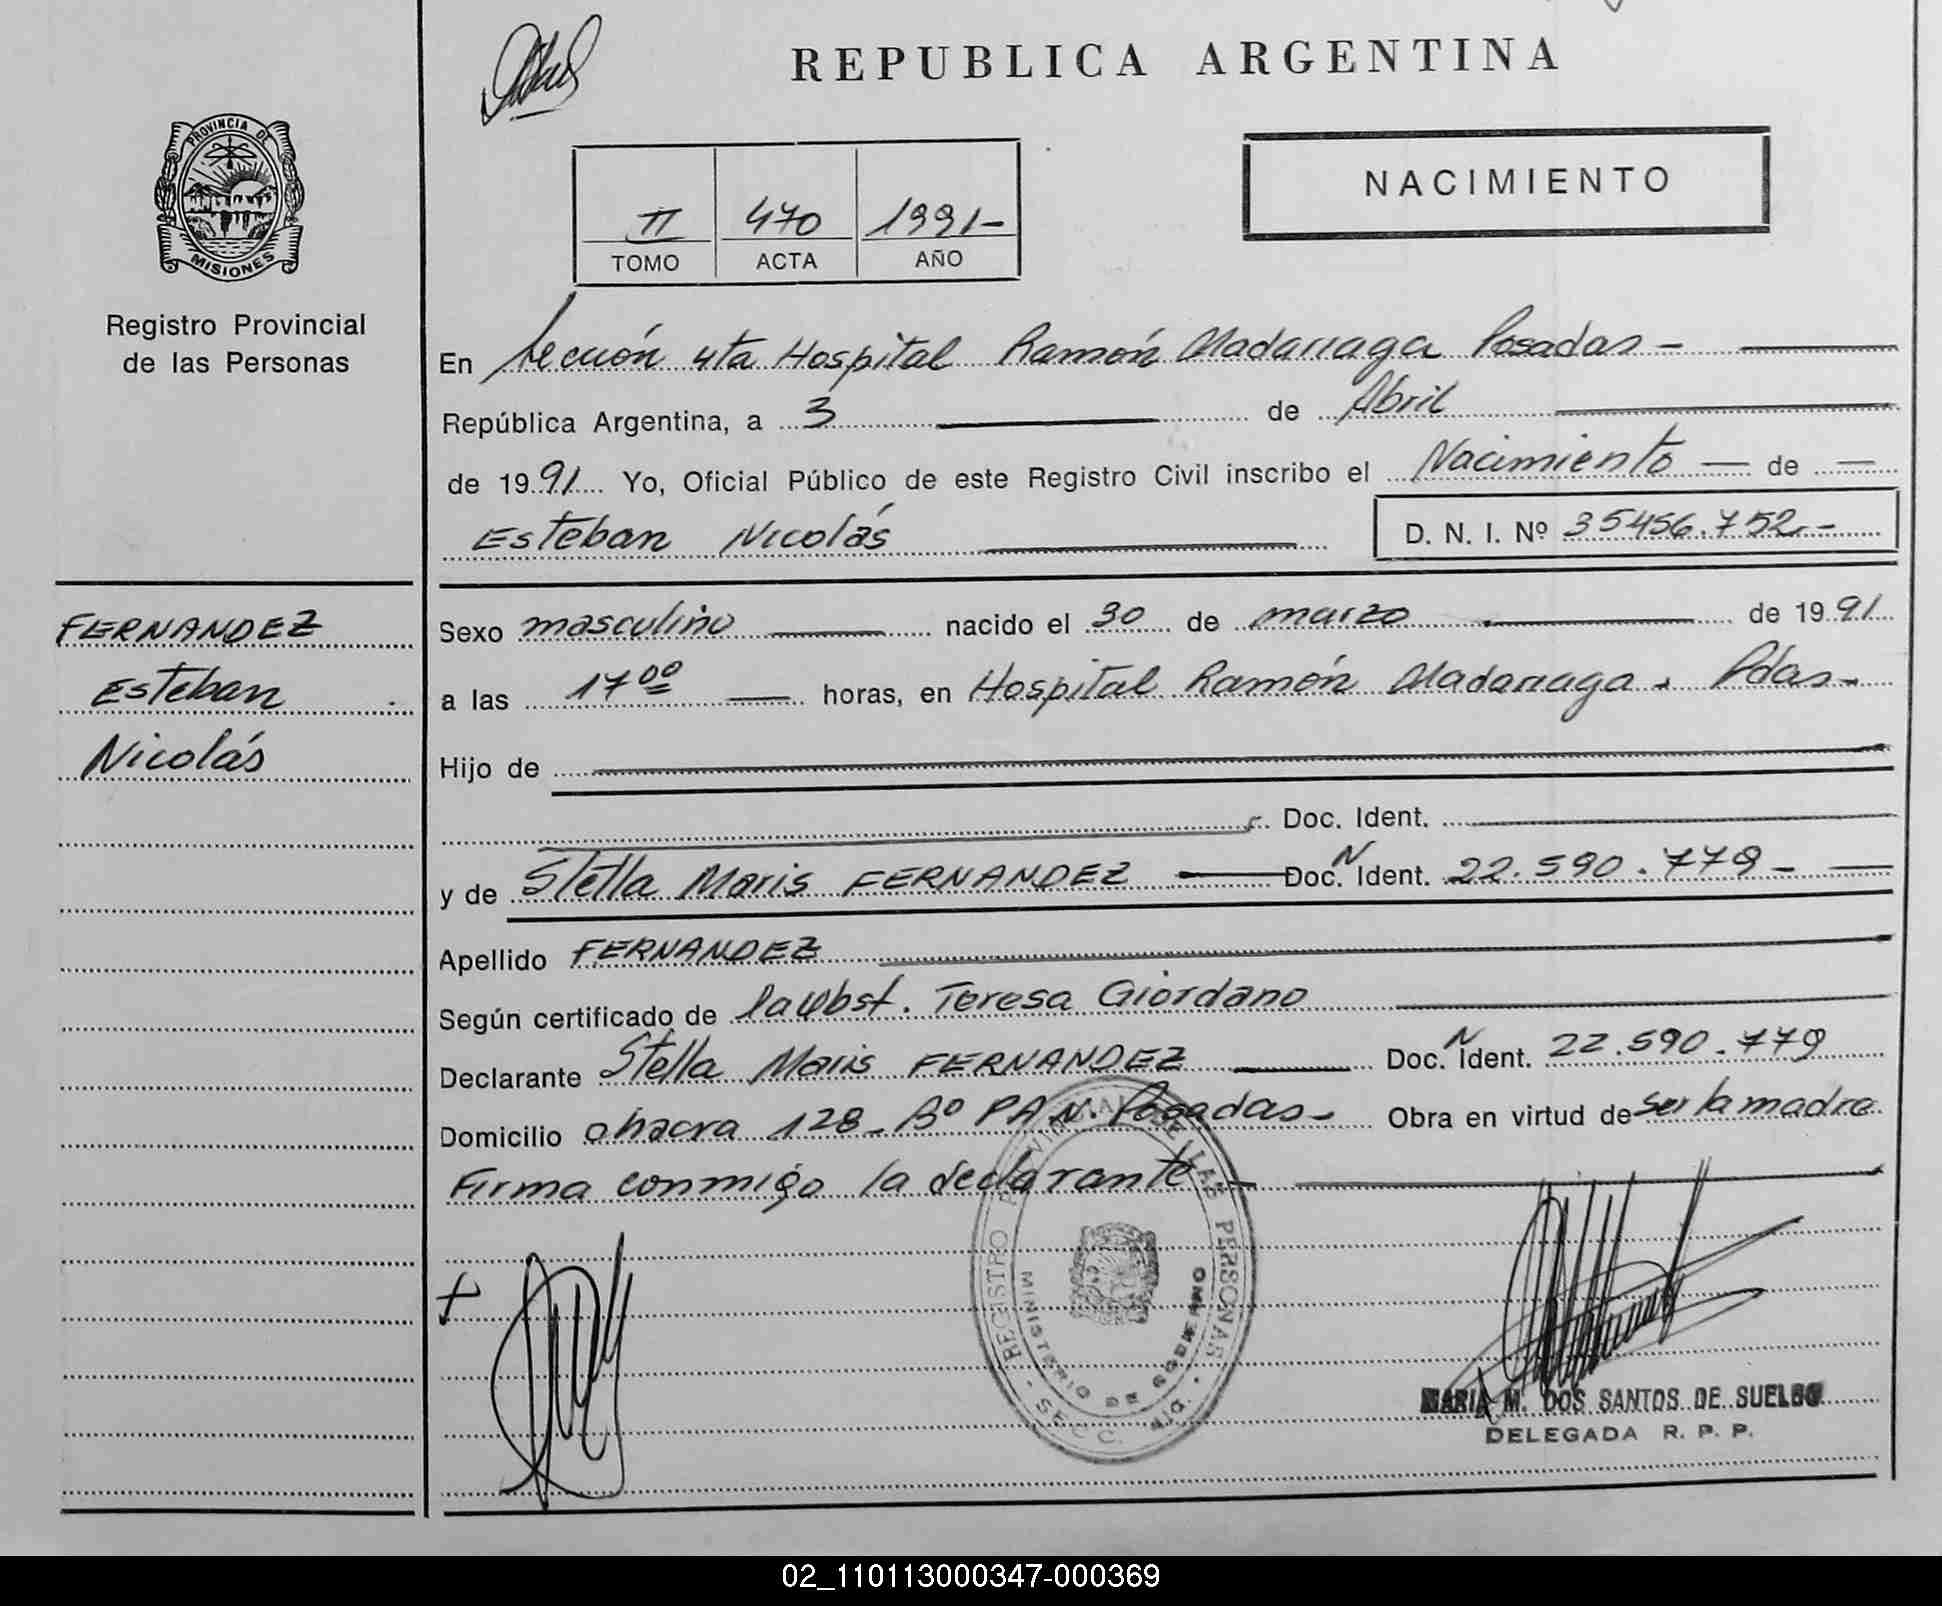 REPUBLICA ARGENTINA
PROVINCIA DE
MISIONES
Registro Provincial
de las Personas
II 470 1991-
TOMO ACTA AÑO
NACIMIENTO
En Sección 4ta Hospital Ramón Madariaga Posadas -
República Argentina, a 3 de Abril
de 1991 Yo, Oficial Público de este Registro Civil inscribo el Nacimiento — de —
Esteban Nicolás D. N. I. Nº 35456.752.-
FERNANDEZ
Esteban
Nicolás
Sexo masculino nacido el 30 de marzo de 1991
a las 17 00 — horas, en Hospital Ramón Madariaga. Pdas-
Hijo de
Doc. Ident.
y de Stella Maris FERNANDEZ Doc. N Ident. 22.590.779 -
Apellido FERNANDEZ
Según certificado de la Obst. Teresa Giordano
Declarante Stella Maris FERNANDEZ Doc. N Ident. 22.590.779
Domicilio chacra 128- Bº PAN. Posadas- Obra en virtud de ser la madre
Firma conmigo la declarante -
REGISTRO PROVINCIAL DE LAS PERSONAS
MINISTERIO DE GOBIERNO
MARIA M. DOS SANTOS DE SUELDO
DELEGADA R. P. P.
02_110113000347-000369